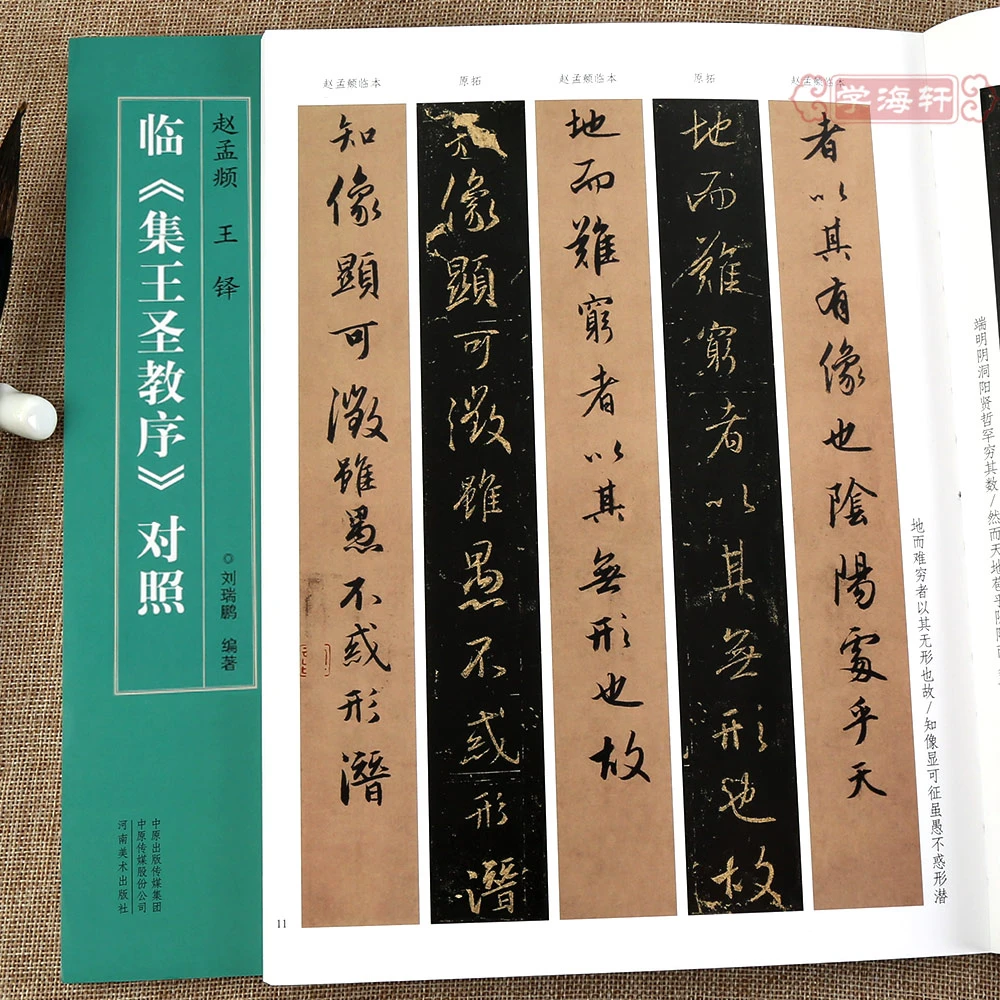 赵孟頫 王铎
临《集王圣教序》对照
◎刘瑞鹏 编著
中原出版传媒集团
中原传媒股份公司
河南美术出版社
学海轩
赵孟頫临本
原拓
赵孟頫临本
原拓
赵孟頫临本
者以其有像也陰陽處乎天
地而難窮者以其無形也故
地而難窮者以其無形也故
知像顯可徵雖愚不惑形潛
像顯可徵雖愚不惑形潛
端明阴洞阳贤哲罕穷其数/然而天地苞乎阴阳而
地而难穷者以其无形也故/知像显可征虽愚不惑形潜
11